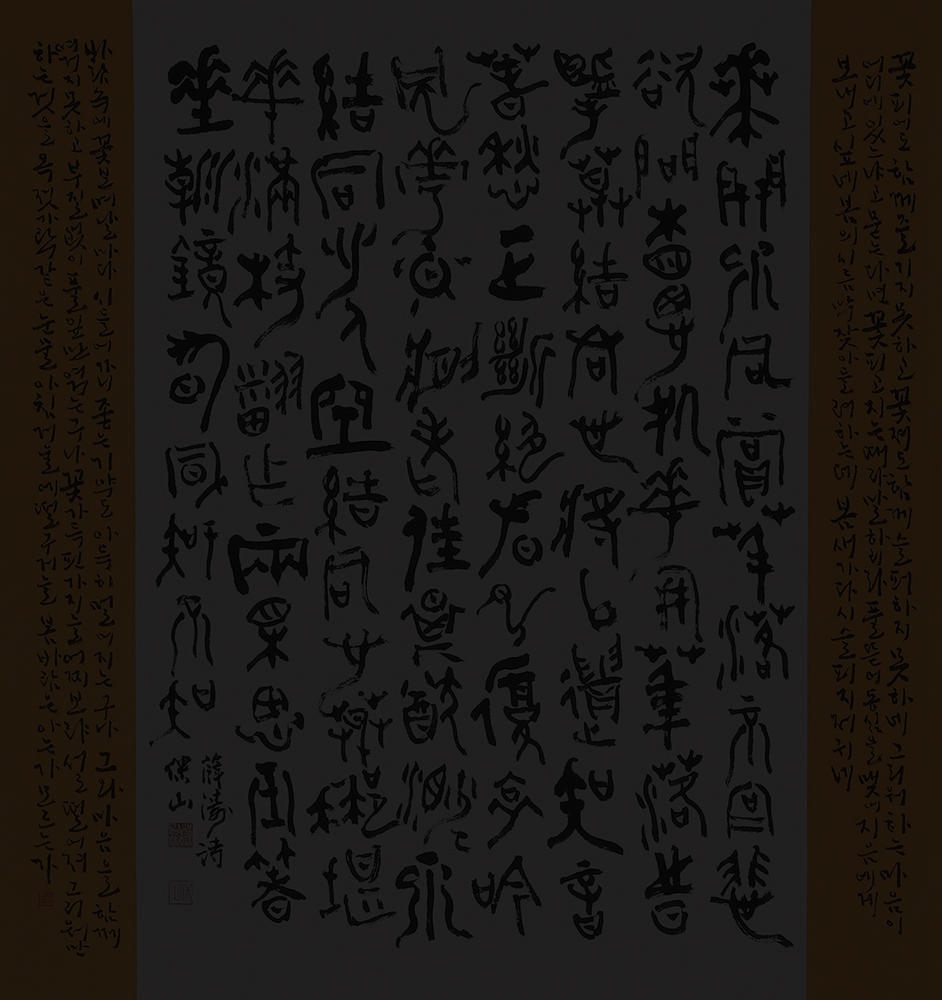 꽃 피어도 함께 즐기지 못하고 꽃 져도 함께 슬퍼하지 못하네 그리워하는 마음이
어디에 있느냐고 묻는다면 꽃 피고 지는 때라 말하리라 풀 뜯어 동심을 맺어 지음에게
보내고 싶네 봄의 시름 막 잦아들려 하는데 봄새가 다시 슬피 지저귀네
花開不同賞花落不同悲
欲問相思處花開花落時
擥草結同心將以遺知音
春愁正斷絕春鳥復哀吟
風花日將老佳期猶渺渺不
結同心人空結同心草那堪
花滿枝翻作兩相思玉箸
垂朝鏡春風知不知
薛濤 詩
保山
바람 속에 꽃은 날마다 시들어가니 좋은 기약도 아득히 멀어지는구나 그와 마음을 함께
엮지 못하고 부질없이 풀잎만 엮는구나 꽃 가득 핀 가지를 어찌 보랴 떨어져 그리워만
하는 것을 옥 젓가락 같은 눈물 아침 거울에 떨구거늘 봄바람은 아는가 모르는가